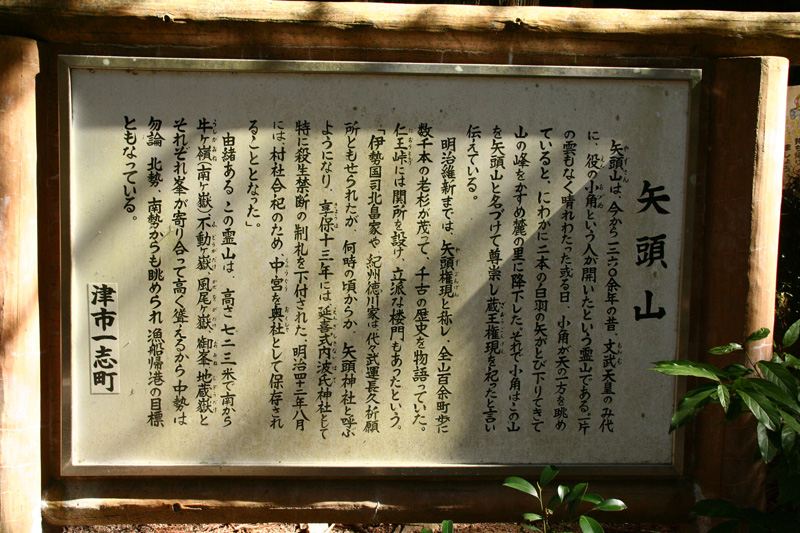 矢頭山
矢頭山は、今から一三六〇余年の昔、文武天皇のみ代
に、役の小角という人が開いたという霊山である。一片
の雲もなく晴れわたった或る日、小角が天の一方を眺め
ていると、にわかに二本の白羽の矢がとび下りてきて
山の峰をかすめ麓の里に降下した。それで小角はこの山
を矢頭山と名づけて尊崇し蔵王権現を祀ったと言い
伝えている。
明治維新までは、矢頭権現と称し、全山百余町歩に
数千本の老杉が茂って、千古の歴史を物語っていた。
仁王峠には関所を設け、立派な楼門もあったという。
「伊勢国司北畠家や、紀州徳川家は、代々武運長久祈願
所ともせられたが、何時の頃からか、矢頭神社と呼ぶ
ようになり、享保十三年には延喜式内波氐神社として
特に殺生禁断の制札を下付された。明治四十二年八月
には、村社合祀のため、中宮を奥社として保存され
ることとなった」。
由緒ある、この霊山は、高さ七二三米で南から
牛ヶ嶺(南ヶ嶽)不動ヶ嶽、風尾ヶ嶽、御峯、地蔵嶽と
それぞれ峯が寄り合って高く聳えるから中勢は
勿論、北勢、南勢からも眺められ漁船帰港の目標
ともなっている。
津市一志町